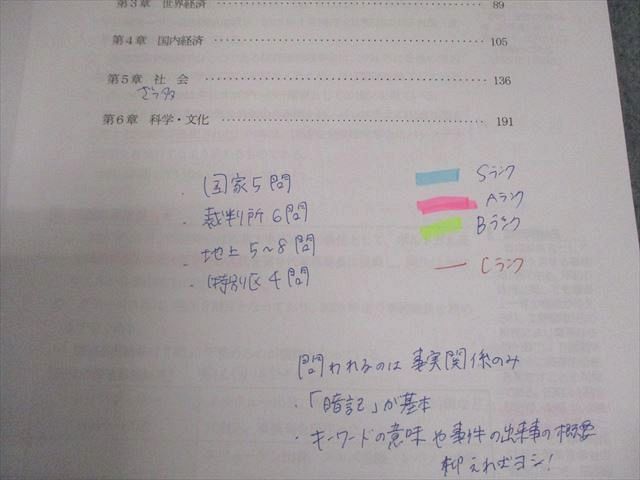 第3章 世界経済 89
第4章 国内経済 105
第5章 社 会 136
第6章 科学・文化 191
・国家5問
・裁判所6問
・地上5~8問
・特別区4問
Sランク
Aランク
Bランク
Cランク
問われるのは事実関係のみ
・「暗記」が基本
・キーワードの意味や事件の出来事の概要
抑えればヨシ!